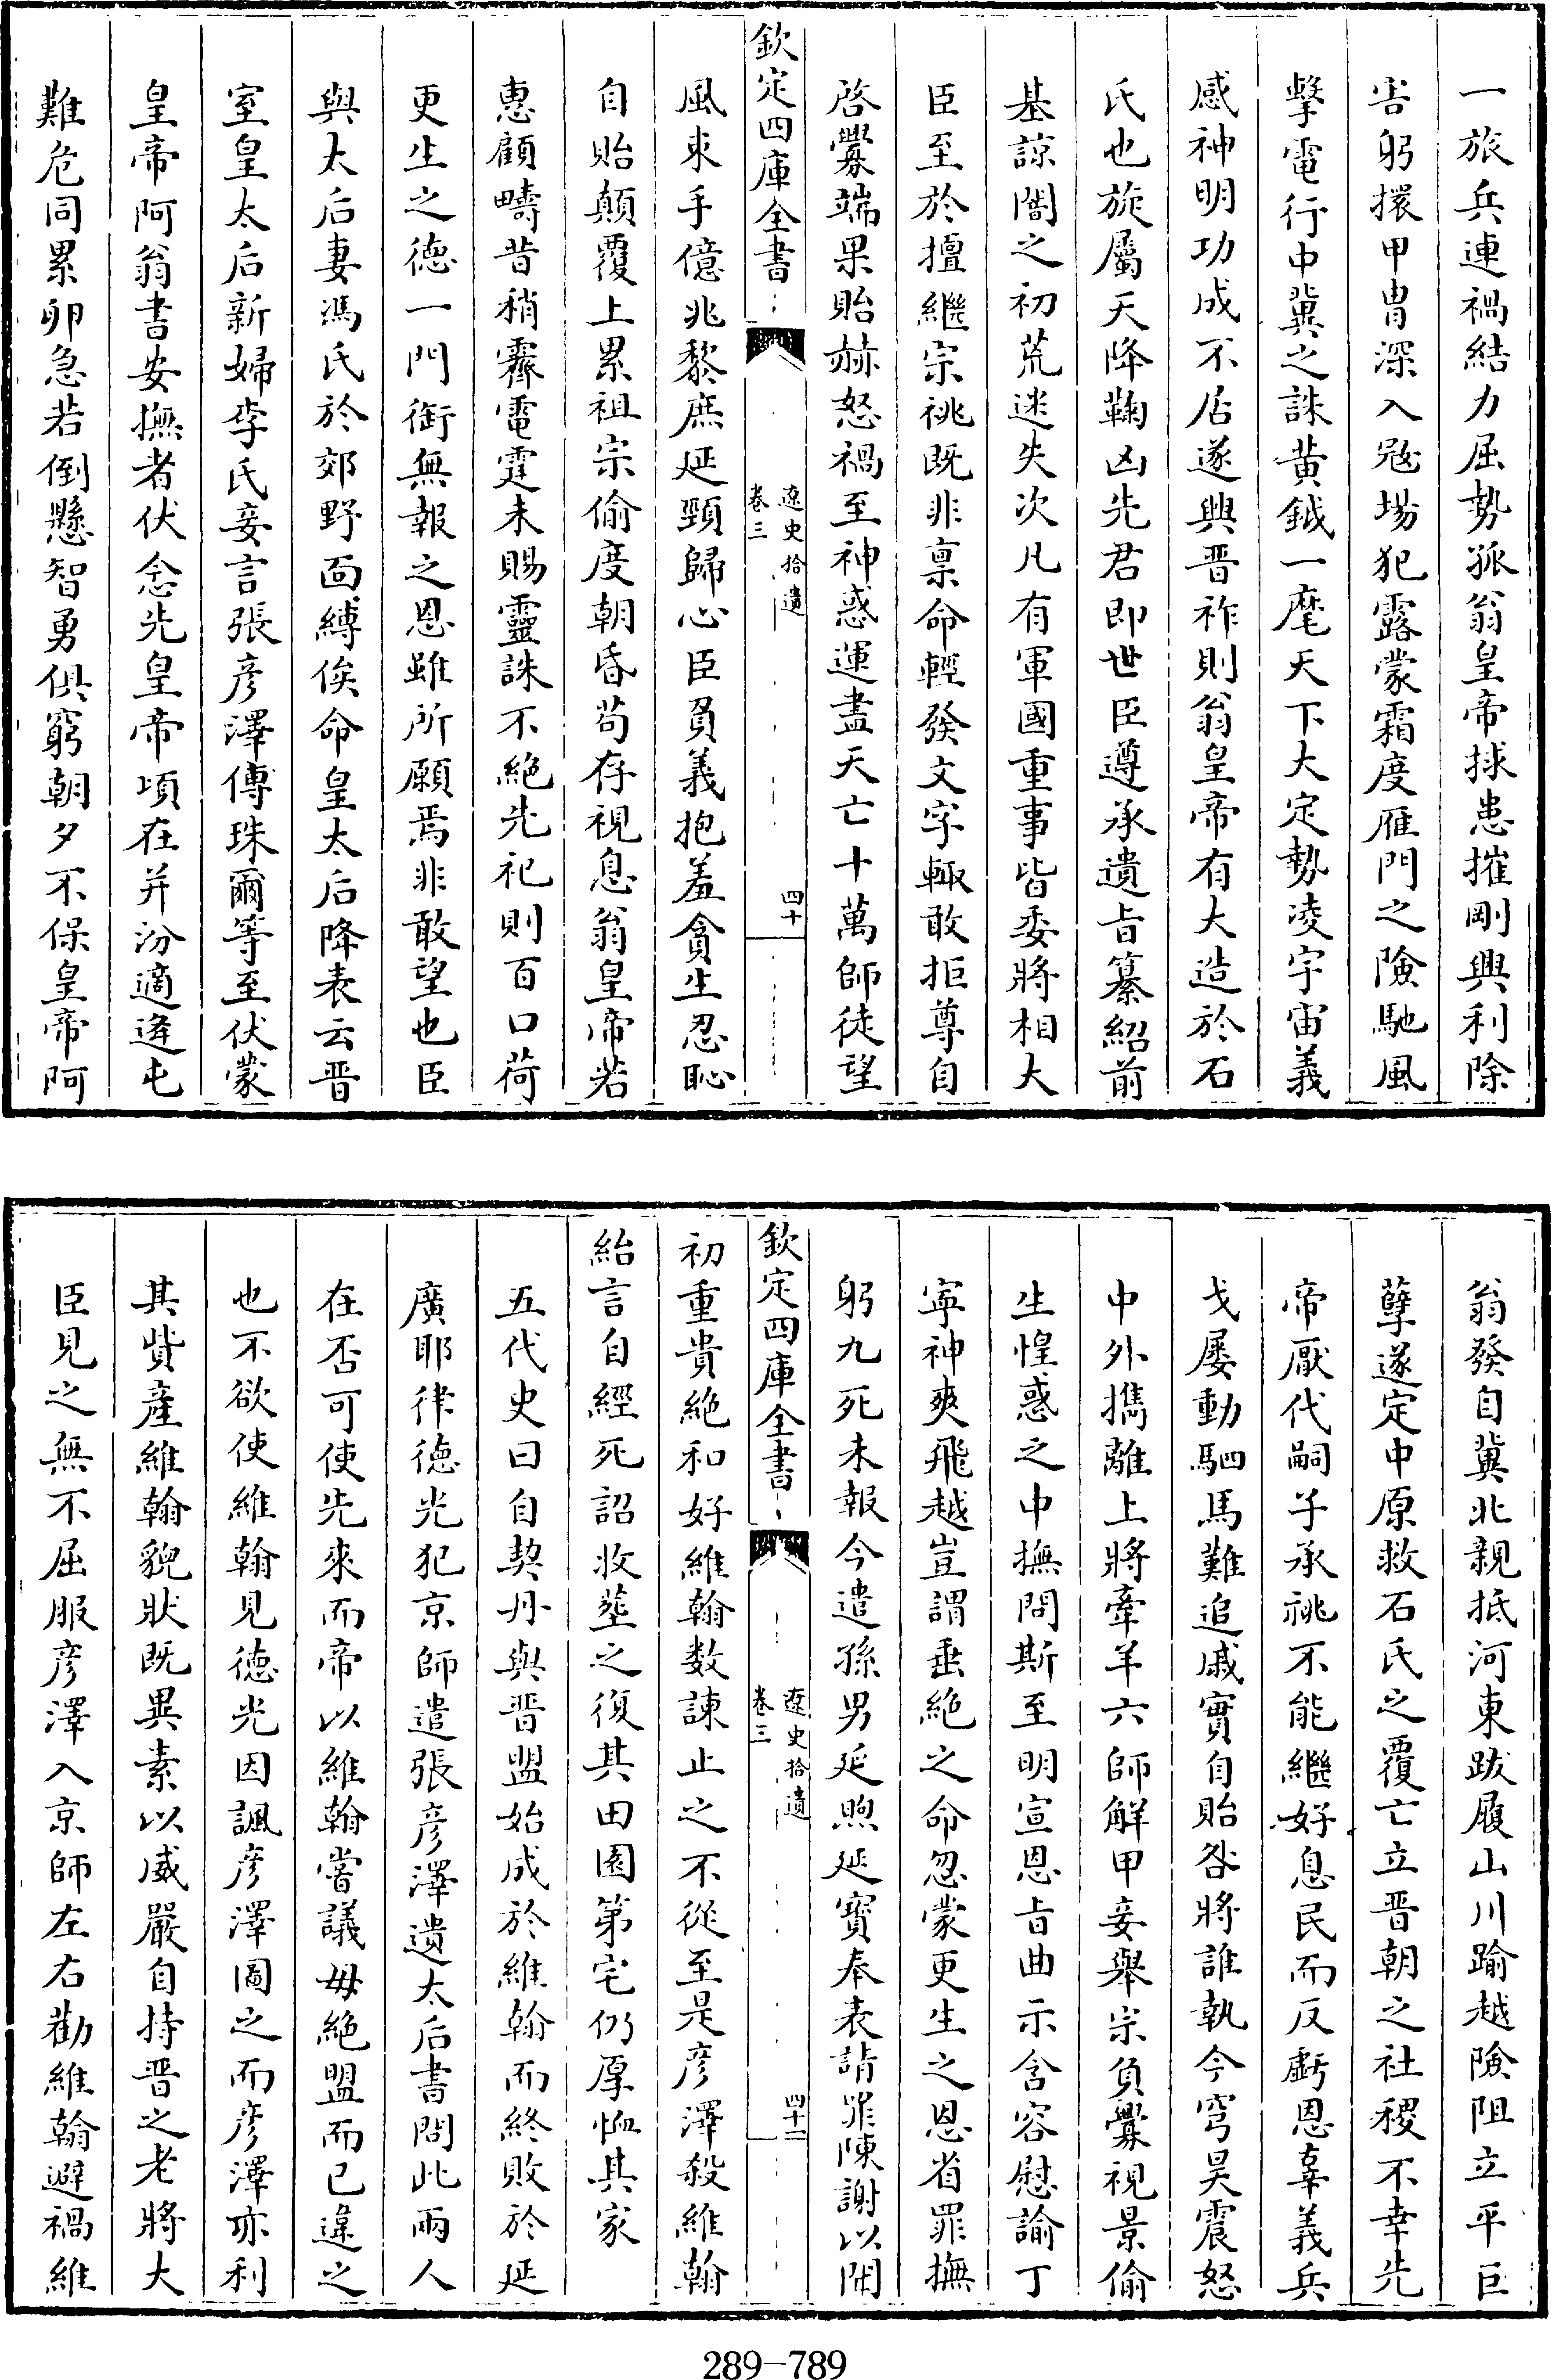 一旅兵連禍結力屈勢孤翁皇帝捄患摧剛興利除
害躬擐甲胄深入冦場犯露蒙霜度雁門之險馳風
擊電行中冀之誅黄鉞一麾天下大定勢凌宇宙義
感神明功成不居遂興晋祚則翁皇帝有大造於石
氏也旋屬天降鞠凶先君即世臣遵承遺㫖纂紹前
基諒闇之初荒迷失次凡有軍國重事皆委將相大
臣至於擅繼宗祧既非禀命輕發文字輙敢拒尊自
啓釁端果貽赫怒禍至神惑運盡天亡十萬師徒望
欽定四庫全書
遼史拾遺
卷三
四十
風束手億兆黎庶延頸歸心臣負義抱羞貪生忍恥
自貽顛覆上累祖宗偷度朝昏茍存視息翁皇帝若
惠顧疇昔稍霽雷霆未賜靈誅不絶先祀則百口荷
更生之徳一門銜無報之恩雖所願焉非敢望也臣
與太后妻馮氏於郊野面縛俟命皇太后降表云晋
室皇太后新婦李氏妾言張彦澤傅珠爾等至伏蒙
皇帝阿翁書安撫者伏念先皇帝頃在并汾適逢屯
難危同累卵急若倒懸智勇俱窮朝夕不保皇帝阿
翁發自冀北親抵河東跋履山川踰越險阻立平巨
孽遂定中原救石氏之覆亡立晋朝之社稷不幸先
帝厭代嗣子承祧不能繼好息民而反虧恩辜義兵
戈屢動駟馬難追戚實自貽咎將誰執今穹昊震怒
中外攜離上將牽羊六師解甲妾舉宗負釁視景偷
生惶惑之中撫問斯至明宣恩㫖曲示含容慰諭丁
寧神爽飛越豈謂垂絶之命忽蒙更生之恩省罪撫
躬九死未報今遣孫男延煦延寳奉表請罪陳謝以聞
欽定四庫全書
遼史拾遺
卷三
四十一
初重貴絶和好維翰数諫止之不從至是彦澤殺維翰
紿言自經死詔收塟之復其田園第宅仍厚恤其家
五代史曰自契丹與晋盟始成於維翰而終敗於延
廣耶律徳光犯京師遣張彦澤遺太后書問此兩人
在否可使先來而帝以維翰嘗議毋絶盟而已違之
也不欲使維翰見徳光因諷彦澤圖之而彦澤亦利
其貲產維翰貌狀既異素以威嚴自持晋之老將大
臣見之無不屈服彦澤入京師左右勸維翰避禍維
289-789